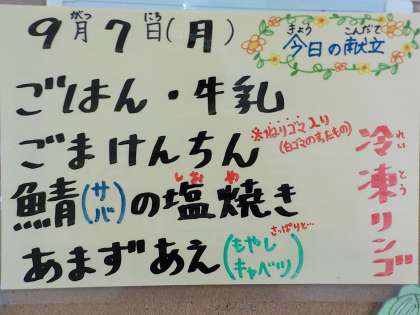 がつ にち
9月7日(月)
きょう こんだて
今日の献立
ごはん・牛乳
ごまけんちん
※ねりゴマ入り
(白ゴマのすったもの)
しお や
鯖(サバ)の塩焼き
さっぱりと…
あまずあえ(もやし キャベツ)
れい とう
冷凍リンゴ